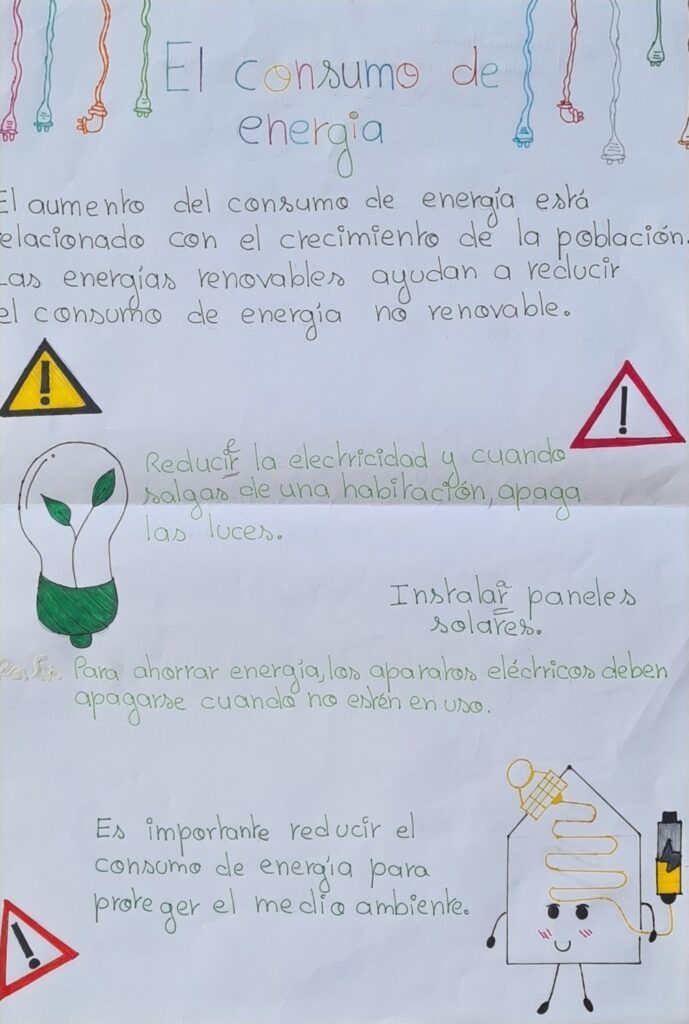 El consumo de
energía
El aumento del consumo de energía está
relacionado con el crecimiento de la población.
Las energías renovables ayudan a reducir
el consumo de energía no renovable.
Reducir la electricidad y cuando
salgas de una habitación, apaga
las luces.
Instalar paneles
solares.
Para ahorrar energía, los aparatos eléctricos deben
apagarse cuando no estén en uso.
Es importante reducir el
consumo de energía para
proteger el medio ambiente.